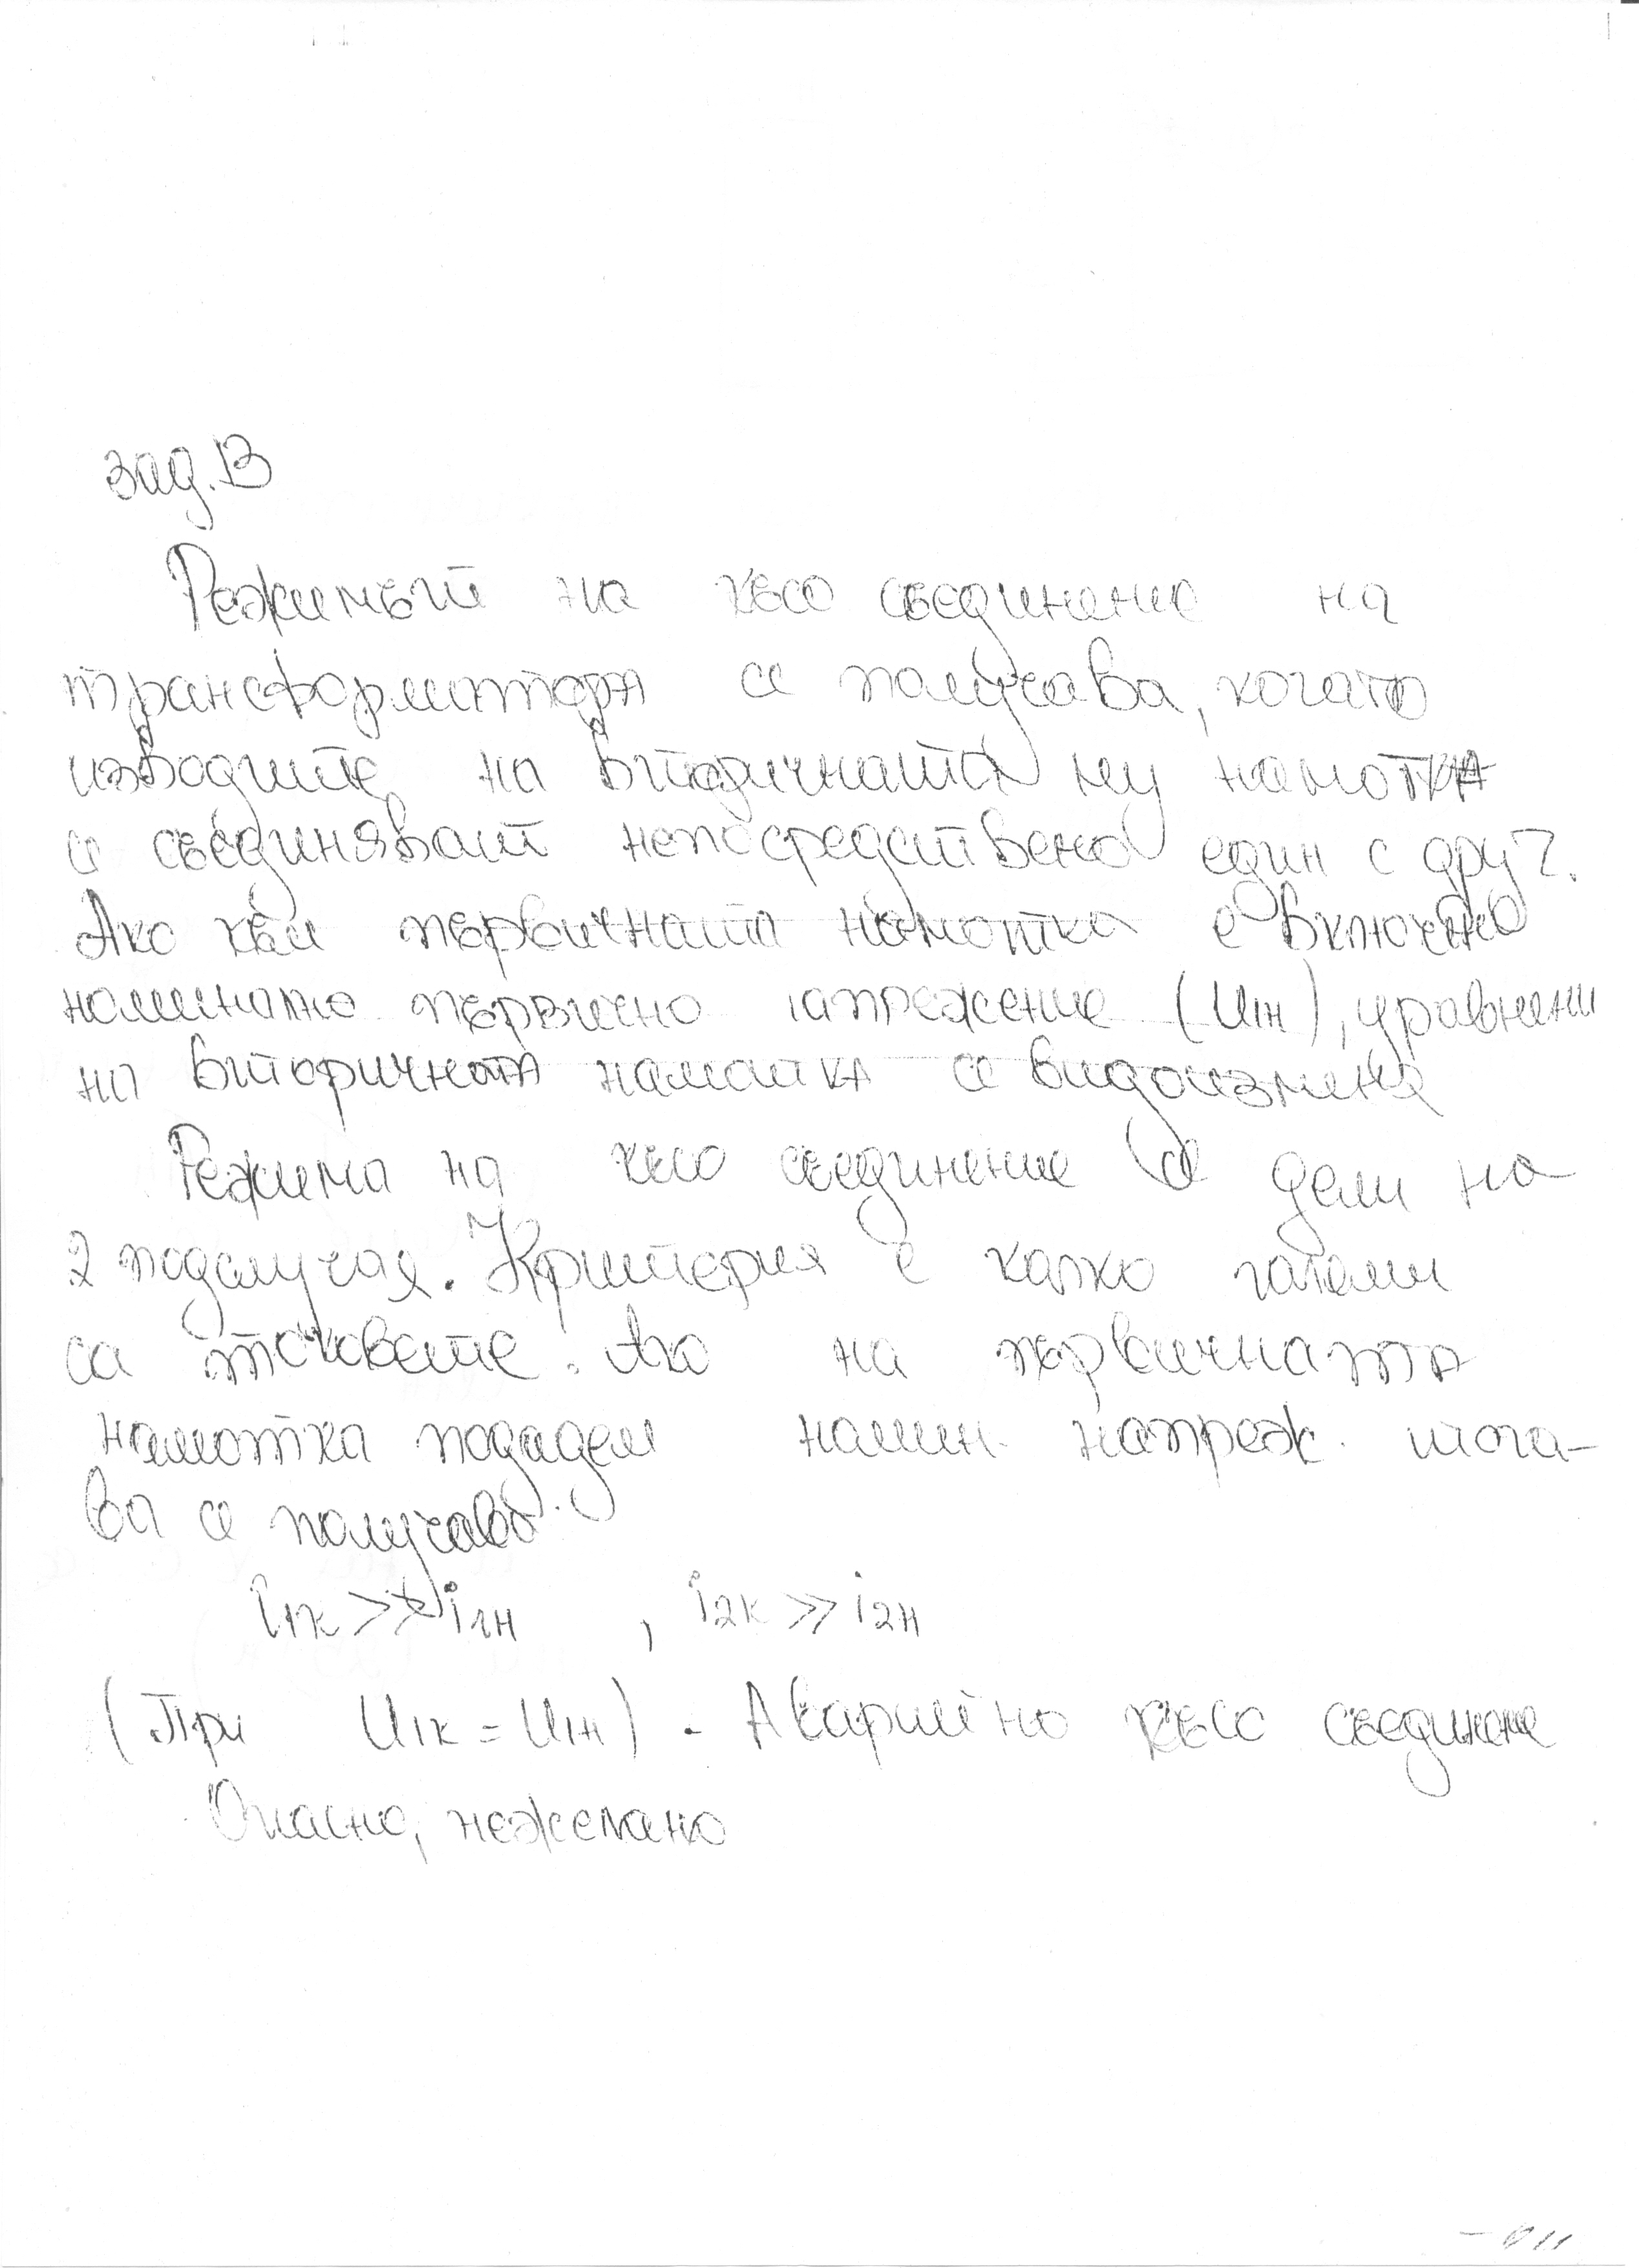 зад. В
Режимът на късо съединение на
трансформатора се получава, когато
изводите на вторичната му намотка
се съединяват непосредствено един с друг.
Ако към първичната намотка е включено
номинално първично напрежение (U1н), уравнени
на вторичната намотка се видоизменя
Режима на късо съединение се дели на
2 подслучая. Критерия е колко големи
са токовете. Ако на първичната
намотка подадем номин. напреж. тога-
ва се получава:
i1к >> i1н , i2к >> i2н
(При U1к = U1н) - Аварийно късо съединение
Опасно, нежелано